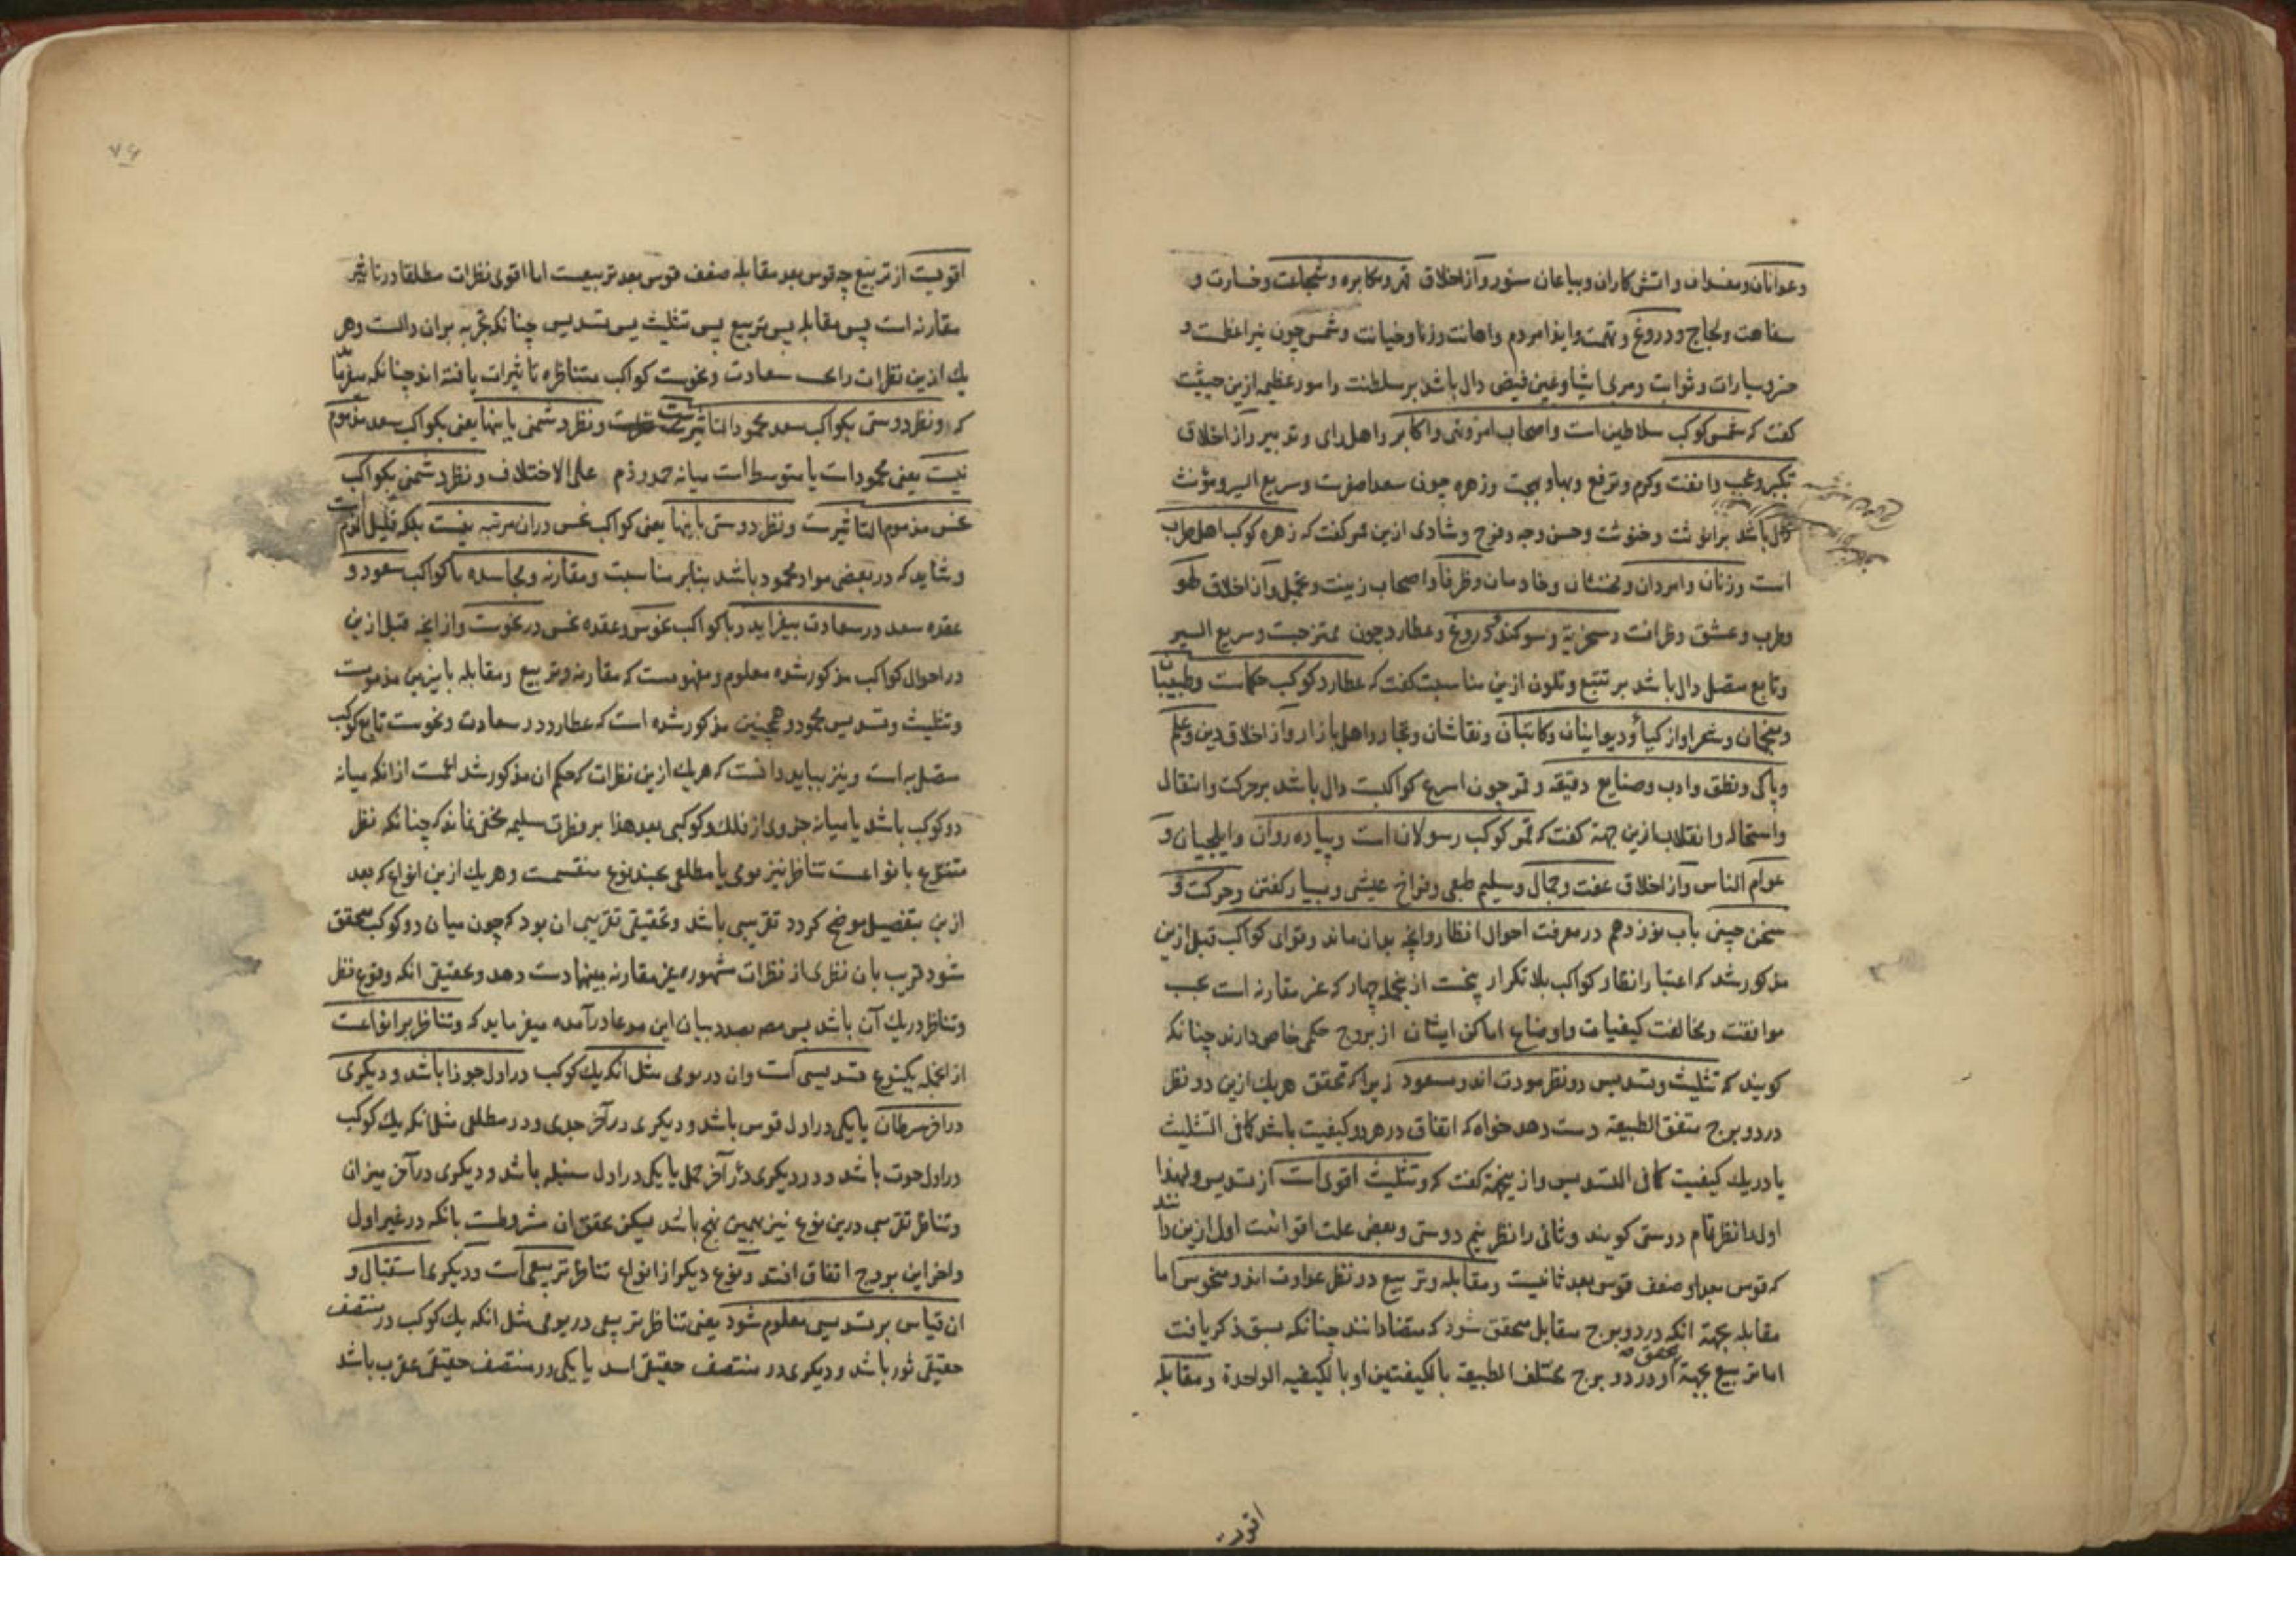 وعوانان ومفسدان واتش کاران وبیاعان ستور وآز اخلاق قهر ومکابره وشجاعت وخسارت و
سفاهت ولجاج ودروغ وتهمت وایذا مردم واهانت وزنا وخیانت وشمس چون نیر اعظمست و
سیارات وثوابت ومربی اشیا وعین فیض دال باشد بر سلطنت وامور عظیمه ازین حیثیت
کفت که شمس کوکب سلاطین است واصحاب امر ونهی واکابر واهل رای وتدبیر واز اخلاق
تکبر وعجب وانفت وکرم وترفع وبها وبهجت وزهره چون سعد اصغرست وسریع السیر ومؤنث
دال باشد بر انوثت وخنوثت وحسن وجه وفرح وشادی ازین ممر کفت که زهره کوکب اهل طرب
است وزنان وامردان ومخنثان وخادمان وظرفا واصحاب زینت وتجمل وآز اخلاق لهو
وطرب وعشق وظرافت وسخریة وسوکند دروغ وعطارد چون ممتزجست وسریع السیر
وتابع متصل دال باشد بر تتبع وتلون ازین مناسبت کفت که عطارد کوکب حکماست وطبیبان
ومنجمان وشعرا واز کیا ودیوانیان وکاتبان ونقاشان وتجار واهل بازار وآز اخلاق دین وعلم
وپاکی ونطق وادب وصنایع دقیقه وقمر چون اسرع کواکبست دال باشد بر حرکت وانتقال
واستحاله وانقلاب ازین جهة کفت که قمر کوکب رسولان است وپیاده روان وایلچیان و
عوام الناس وآز اخلاق عفت وجمال وسلیم طبعی وفراخ عیشی وبسیار کفتن وحرکت و
سخن چینی باب نوزدهم در معرفت احوال انظار وانچه بدان ماند وقوای کواکب قبل ازین
مذکور شد که اعتبار انظار کواکب بلا تکرار پنجست از انجمله چهار که غیر مقارنه است بحسب
موافقت ومخالفت کیفیات واوضاع اماکن ایشان از بروج حکمی خاص دارند چنانکه
کویند که تثلیث وتسدیس دو نظر مودت اند ومسعود زیرا که تحقق هر یک ازین دو نظر
در دو برج متفق الطبیعه دست دهد خواه که اتفاق در هر دو کیفیت باشد کما فی التثلیث
یا در یک کیفیت کما فی التسدیس واز ینجهة کفت که وتثلیث اقوی است از تسدیس ولهذا
اول را نظر تمام دوستی کویند وثانی را نظر نیم دوستی وبعضی علت اقوائیت اول ازین دانند
که قوس بعد او ضعف قوس بعد ثانیست ومقابله وتربیع دو نظر عداوت اند ومنحوس اما
مقابله بجهة انکه در دو برج مقابل محقق شود که متضاد اند چنانکه سبق ذکر یافت
اما تربیع بجهة تحقق او در دو برج مختلف الطبیعة بالکیفیتین او بالکیفیه الواحدة ومقابله
اقویست
۷۶
اقویست از تربیع چه قوس بعد مقابله ضعف قوس بعد تربیعست اما اقوی نظرات مطلقا در تاثیر
مقارنه است پس مقابله پس تربیع پس تثلیث پس تسدیس چنانکه تجربه بر ان دالست وهر
یک ازین نظرات را بحسب سعادت ونحوست کواکب متناظره تاثیرات یافته اند چنانکه میفرماید
که ونظر دوستی بکواکب سعد محمود التاثیرست ونظر دشمنی باینها یعنی بکواکب سعد مذموم
نیست یعنی محمودات یا متوسط است میانه حمد وذم علی الاختلاف ونظر دشمنی بکواکب
نحس مذموم التاثیرست ونظر دوستی باینها یعنی کواکب نحس دران مرتبه نیست بلکه قلیل الذم است
وشاید که در بعضی مواد محمود باشد بنابر مناسبت ومقارنه ومجاسده با کواکب سعود و
عقده سعد در سعادت بیفزاید وبا کواکب نحوس وعقده نحس در نحوست واز انچه قبل ازین
در احوال کواکب مذکور شده معلوم ومفهومست که مقارنه وتربیع ومقابله با نیرین مذمومست
وتثلیث وتسدیس محمود وهمچنین مذکور شده است که عطارد در سعادت ونحوست تابع کوکب
متصل به است ونیز بباید دانست که هر یک ازین نظرات که حکم ان مذکور شد اعمست از انکه میانه
دو کوکب باشد یا میانه جزوی از فلک وکوکبی بعد هذا بر فطرت سلیم مخفی نماند که چنانکه نظر
متنوع بانواعست تناظر نیز یومی یا مطلعی بچند نوع منقسمست وهر یک ازین انواع که بعد
ازین بتفصیل موضح کردد تقریبی باشد وتحقیقی تقریبی ان بود که چون میان دو کوکب محقق
شود قریب بان نظری از نظرات مشهوره غیر مقارنه بینهما دست دهد وتحقیقی انکه وقوع نظر
وتناظر در یک آن باشد پس مصـ بصدد بیان این مدعا درآمده میفرماید که وتناظر بر انواعست
از انجمله یکنوع تسدیسی است وان در یومی مثل انکه یک کوکب در اول جوزا باشد ودیکری
در اخر سرطان یا یکی در اول قوس باشد ودیکری در آخر جدی ودر مطلعی مثل انکه یک کوکب
در اول حوت باشد ودر دیکری در آخر حمل یا یکی در اول سنبله باشد ودیکری در آخر میزان
وتناظر تقریبی درین نوع نیز بهمین نهج باشد لیکن تحقق ان مشروطست بانکه در غیر اول
واخر این بروج اتفاق افتد ونوع دیکر از انواع تناظر تربیعی است ودیکری استقبال و
ان قیاس بر تسدیسی معلوم شود یعنی تناظر تربیعی در یومی مثل انکه یک کوکب در منتصف
حقیقی ثور باشد ودیکری در منتصف حقیقی اسد یا یکی در منتصف حقیقی عقرب باشد